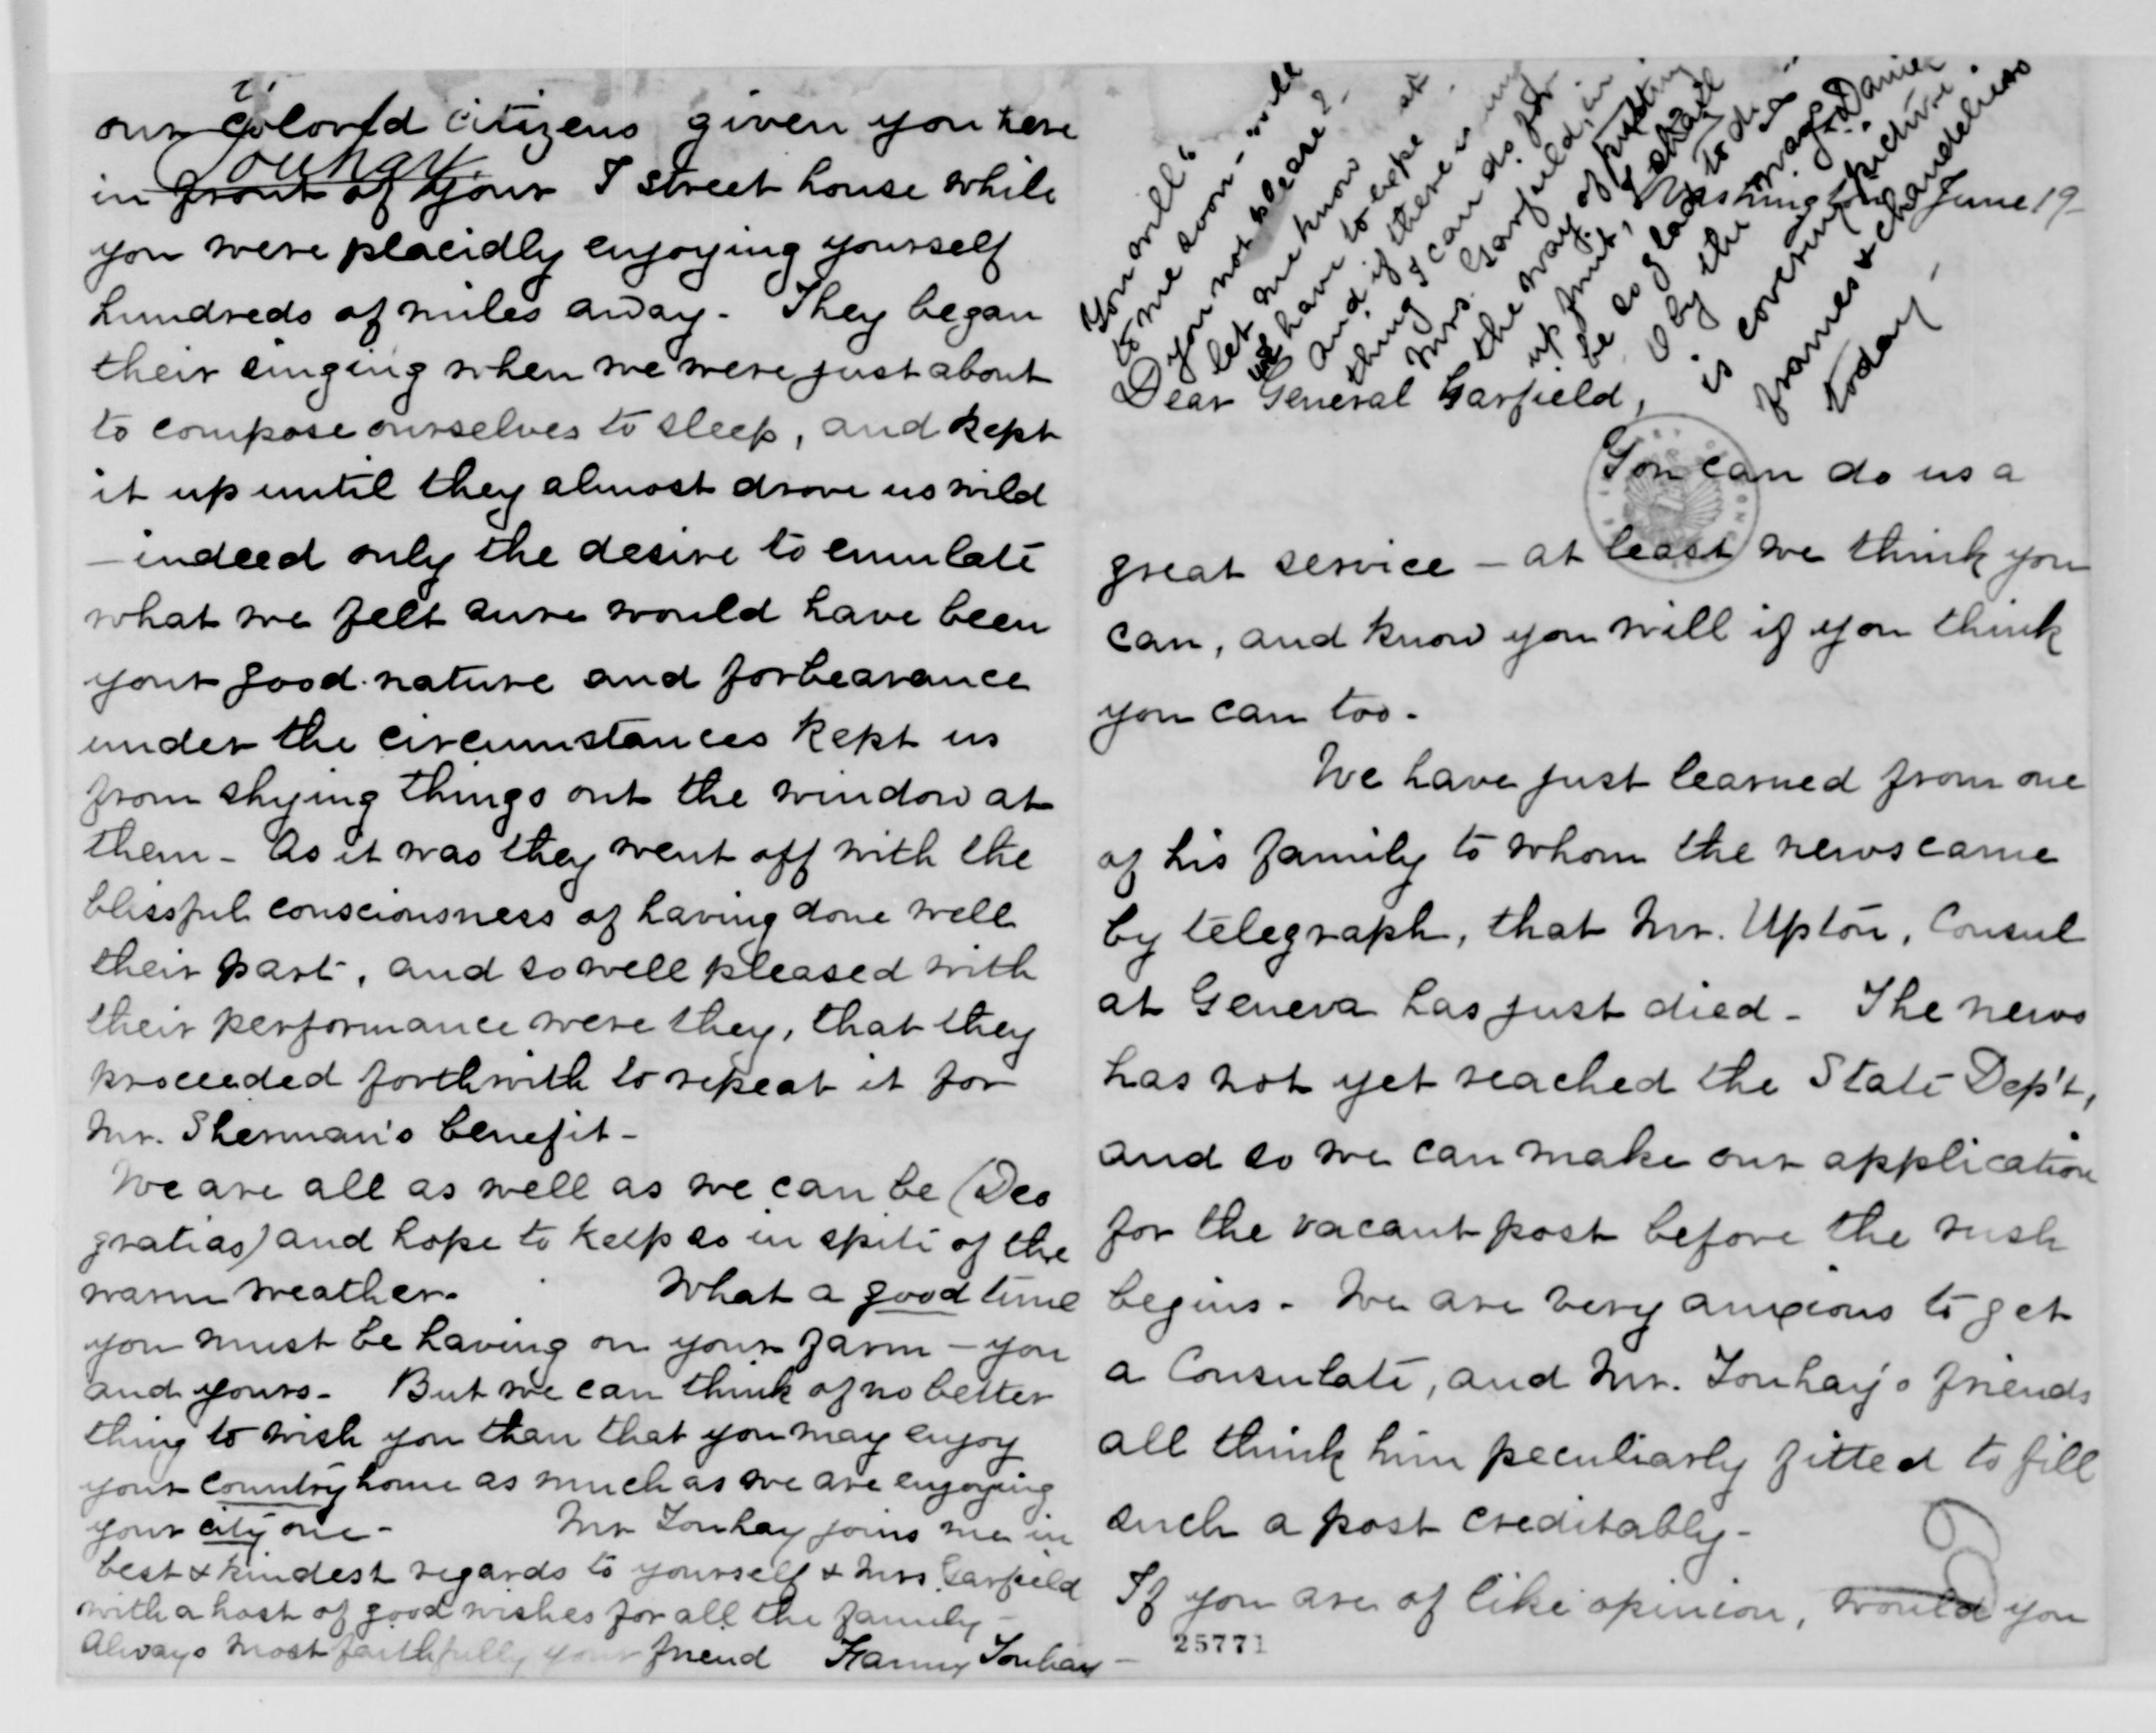 our colored citizens given you here
Touhay.
in front of your I street house while
you were placidly enjoying yourself
hundreds of miles away - They began
their singing when we were just about
to compose ourselves to sleep, and kept
it up until they almost drove us wild
- indeed only the desire to emulate
what we felt sure would have been
your good nature and forbearance
under the circumstances kept us
from shying things out the window at
them - As it was they went off with the
blissful consciousness of having done well
their part, and so well pleased with
their performance were they, that they
proceeded forthwith to repeat it for
Mr. Sherman's benefit -
We are all as well as we can be (Deo
gratias) and hope to keep so in spite of the
warm weather. What a good time
you must be having on your farm - you
and yours - But we can think of no better
thing to wish you than that you may enjoy
your country home as much as we are enjoying
your city one - Mr Touhay joins me in
best & kindest regards to yourself & Mrs. Garfield
with a host of good wishes for all the family -
Always most faithfully your friend Fanny Touhay -
You will
to me soon - will
you not please? -
let me know
we have to hope
And if there is any
thing I can do for
Mrs. Garfield, in
the way of putting
up fruit, I shall
be so glad to do so
O by the
is covering picture
frames & chandeliers
today -
Washington June 19 -
Dear General Garfield,
You can do us a
great service - at least we think you
can, and know you will if you think
you can too -
We have just learned from one
of his family to whom the news came
by telegraph, that Mr. Upton, Consul
at Geneva has just died - The news
has not yet reached the State Dep't,
and so we can make our application
for the vacant post before the rush
begins - We are very anxious to get
a Consulate, and Mr. Touhay's friends
all think him peculiarly fitted to fill
such a post creditably -
If you are of like opinion, would you
25771